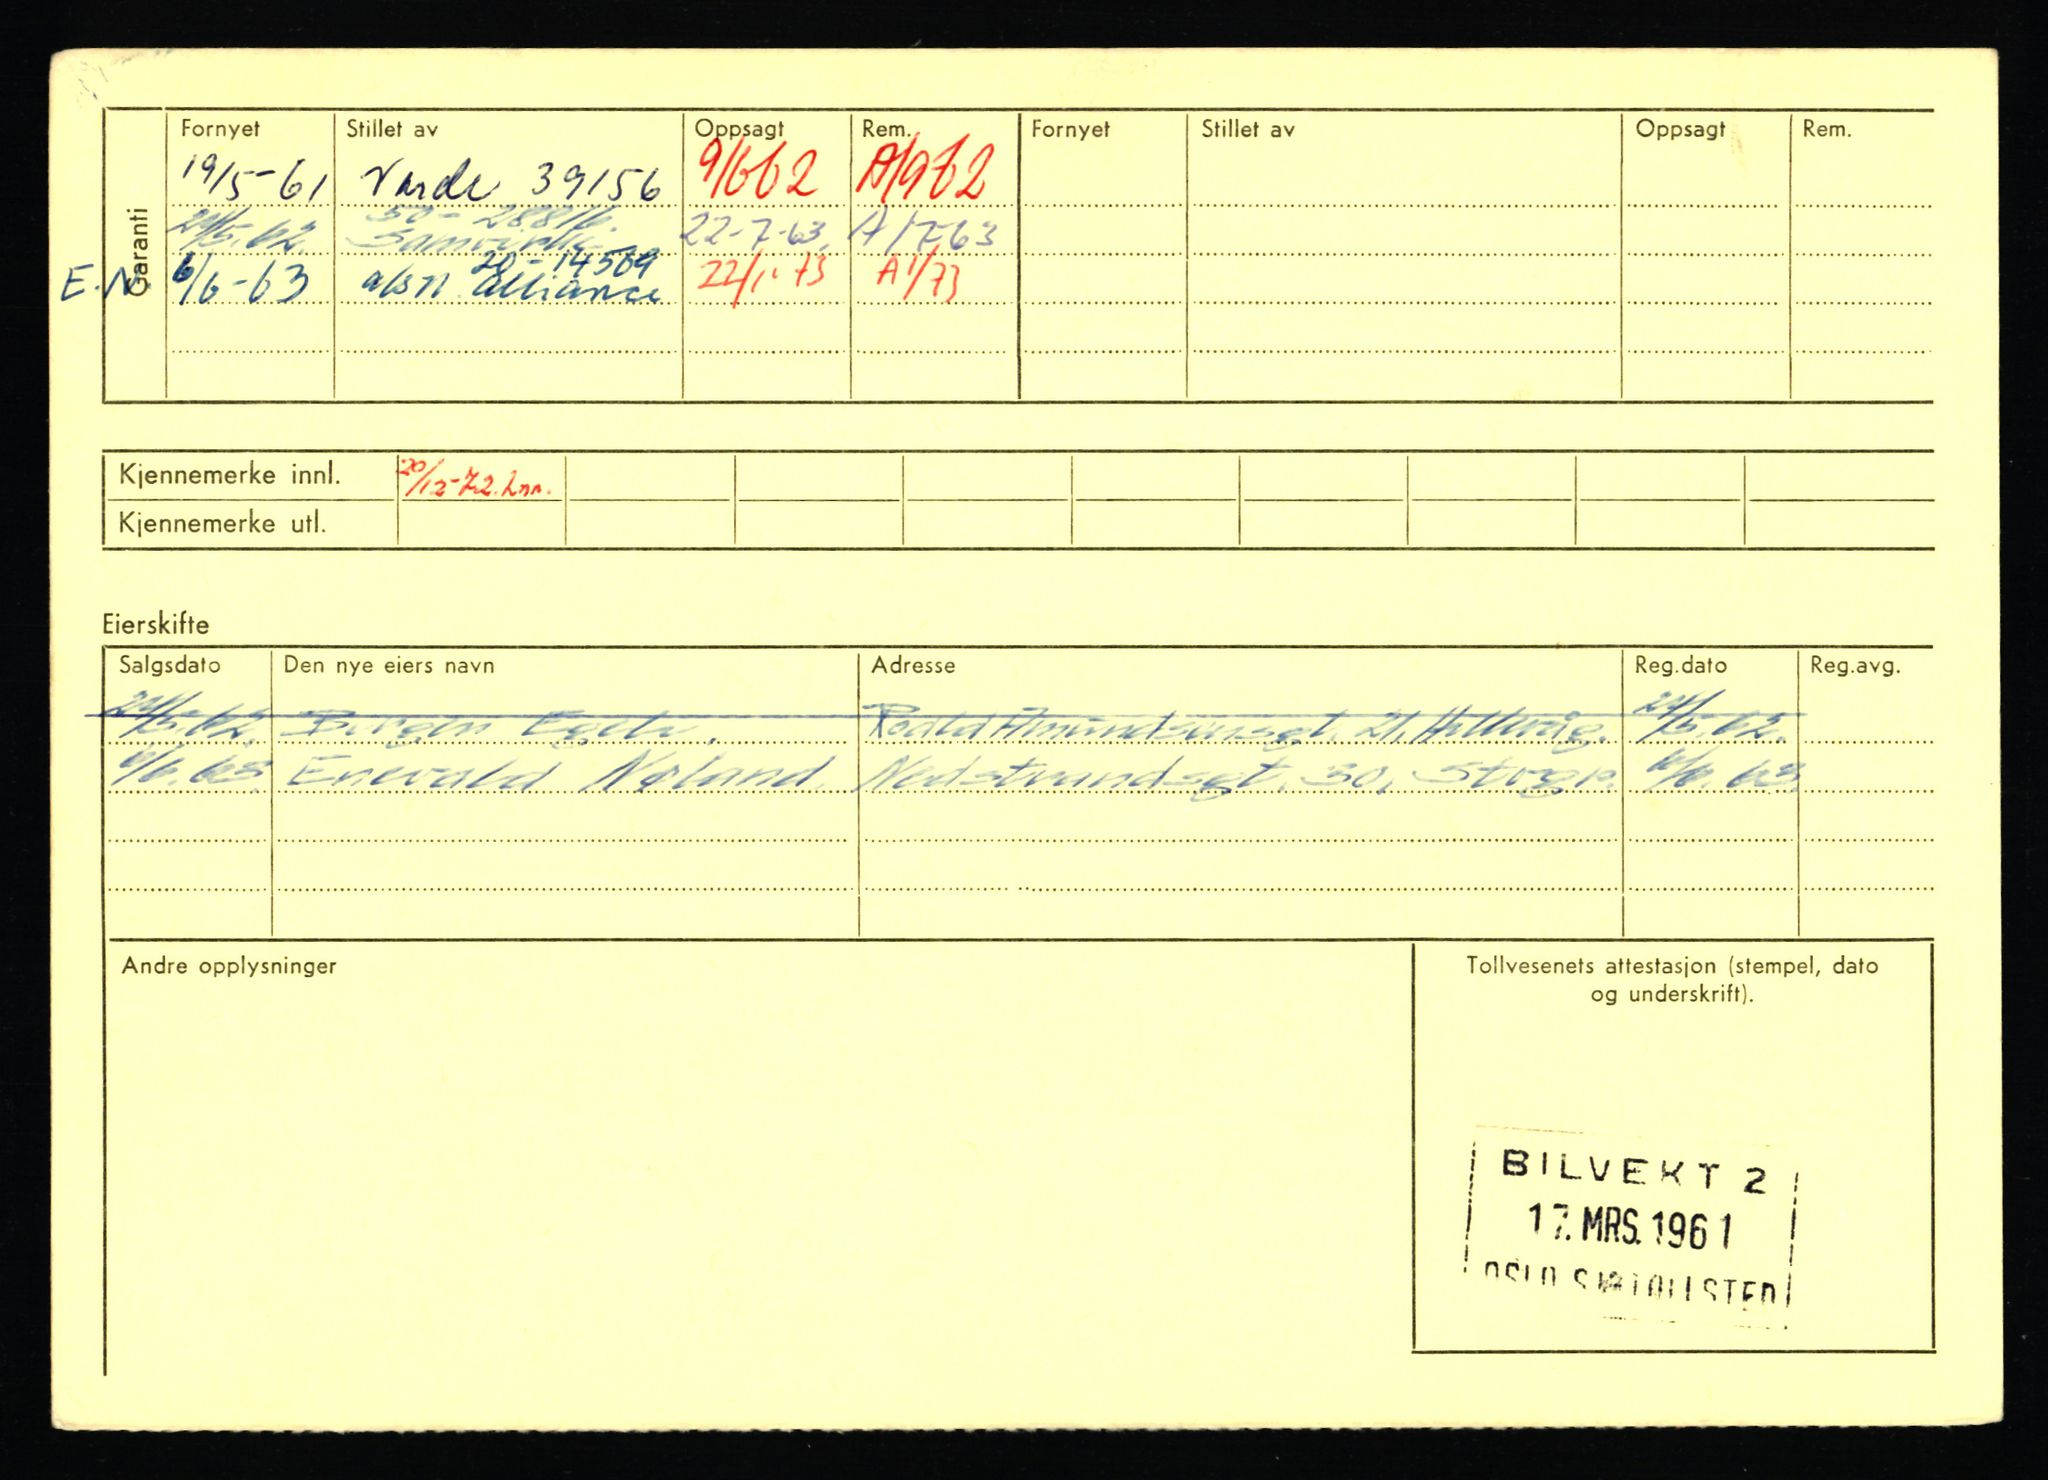 Garanti
Fornyet Stillet av Oppsagt Rem. Fornyet Stillet av Oppsagt Rem.
19/5-61 Varde 39156 9/6 62 A/9 62
50 - 28816.
24/5.62. Samvirke 22-7-63. A/7-63
20 - 14569
E.N. 6/6-63 Alliance 22/1-73 A1/73
Kjennemerke innl. 20/12-72.
Kjennemerke utl.
Eierskifte
Salgsdato Den nye eiers navn Adresse Reg.dato Reg.avg.
24/5.62. Birger Roald Amundsensgt. 21, 24/5.62.
6/6.63. Enevald Nøland. Nedstrandsgt. 30, 6/6.63.
Andre opplysninger
Tollvesenets attestasjon (stempel, dato
og underskrift).
BILVEKT 2
17. MRS. 1961
OSLO